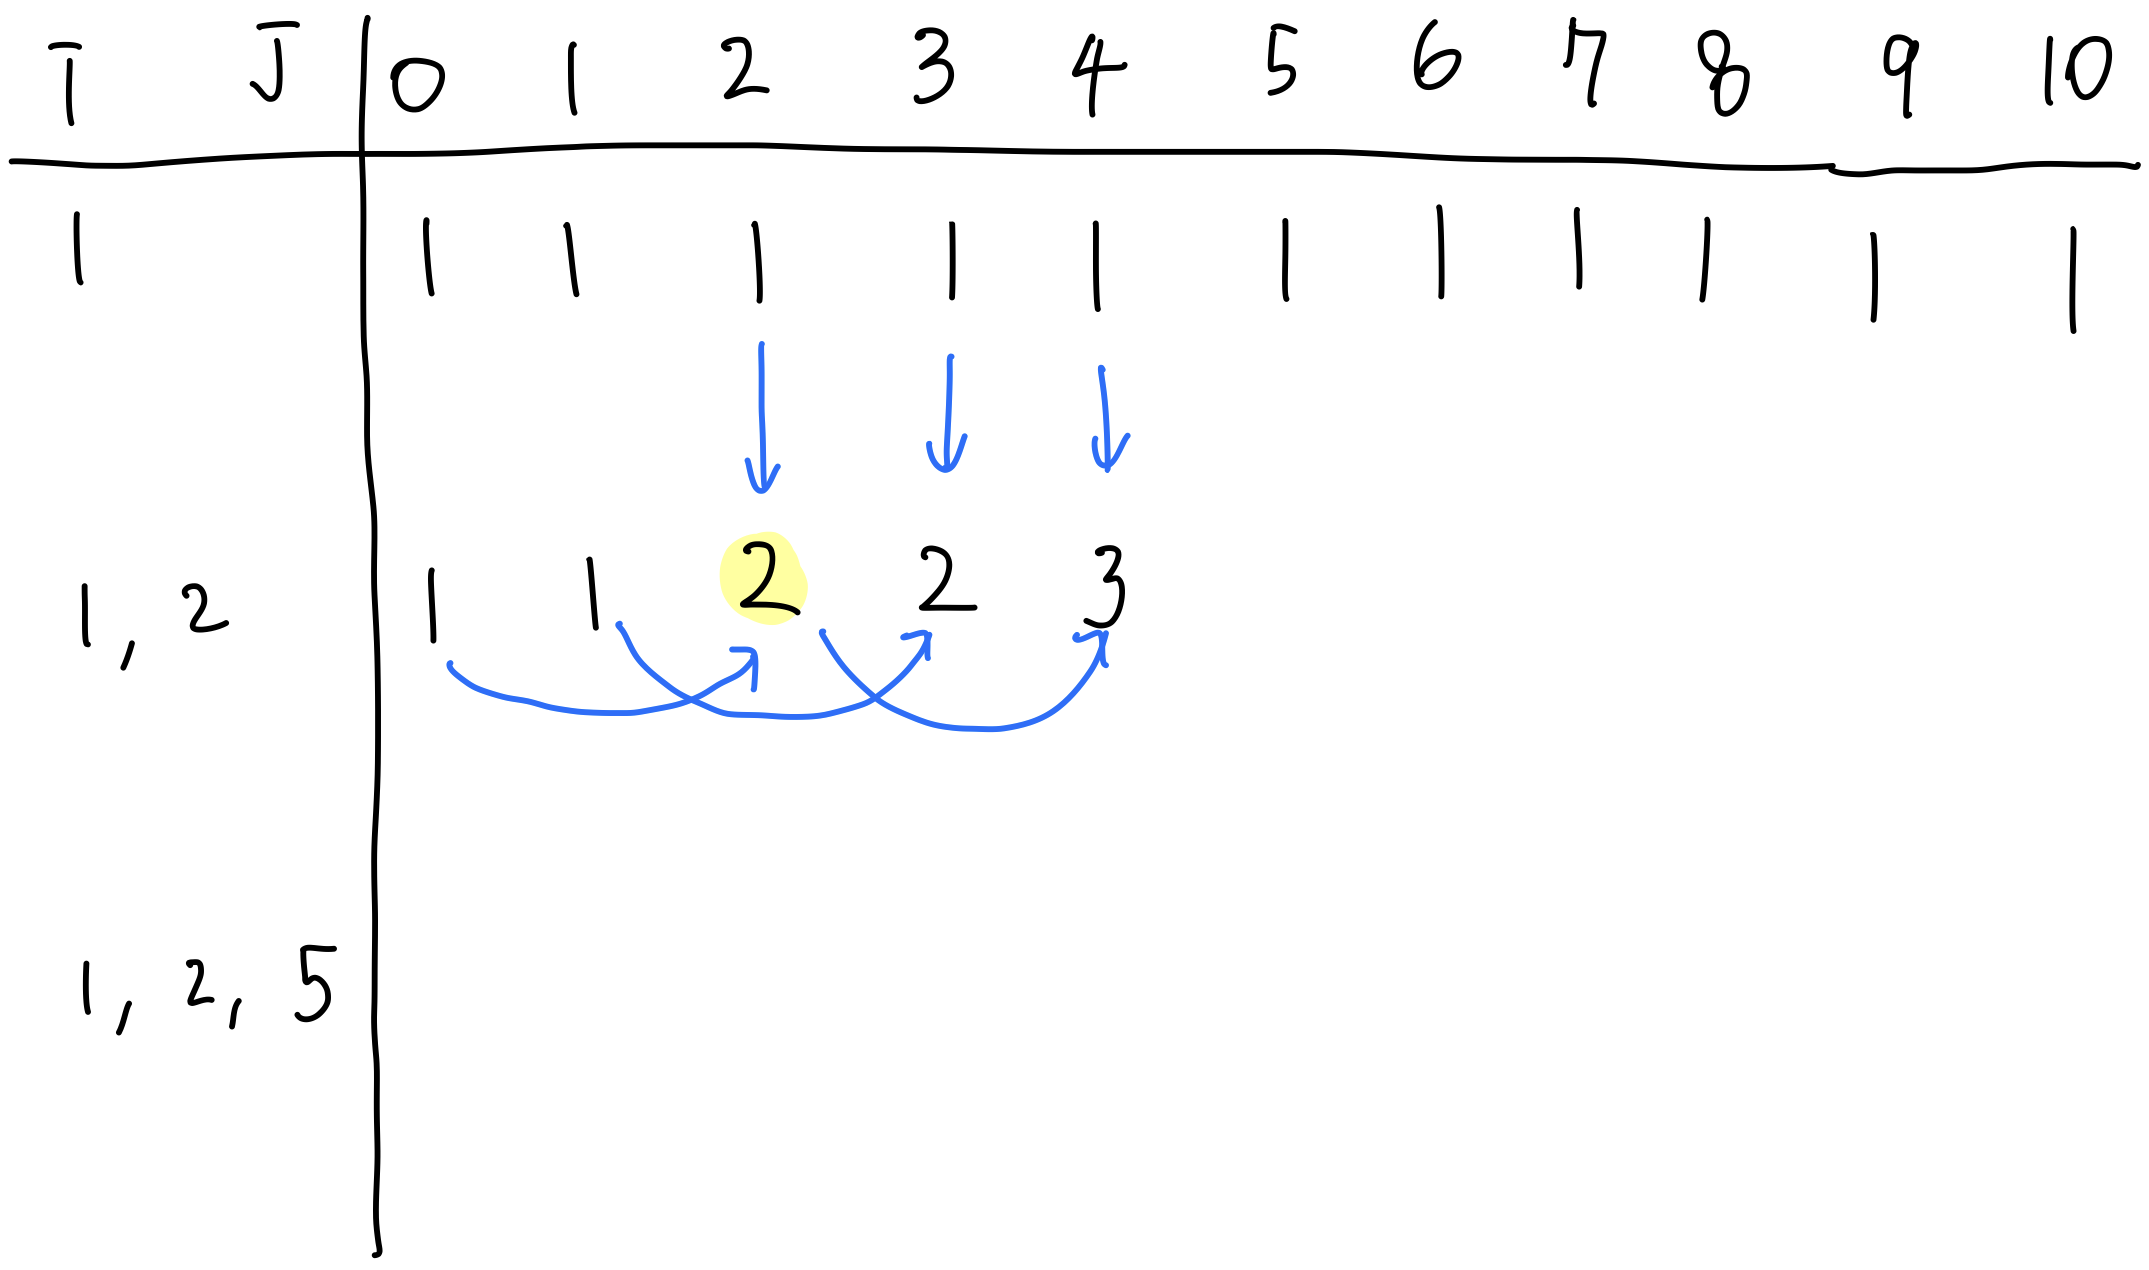 I J 0 1 2 3 4 5 6 7 8 9 10
1 1 1 1 1 1 1 1 1 1 1 1
1, 2 1 1 2 2 3
1, 2, 5